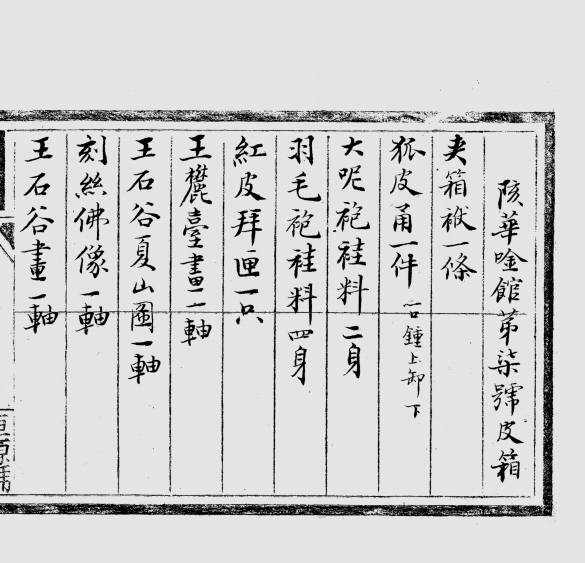 陔華唫館苐柒號皮箱
夹箱袱一條
狐皮甬一件 一口鍾上卸下
大呢袍袿料二身
羽毛袍袿料四身
紅皮拜匣一只
王麓臺畫一軸
王石谷夏山圖一軸
刻絲佛像一軸
王石谷畫一軸